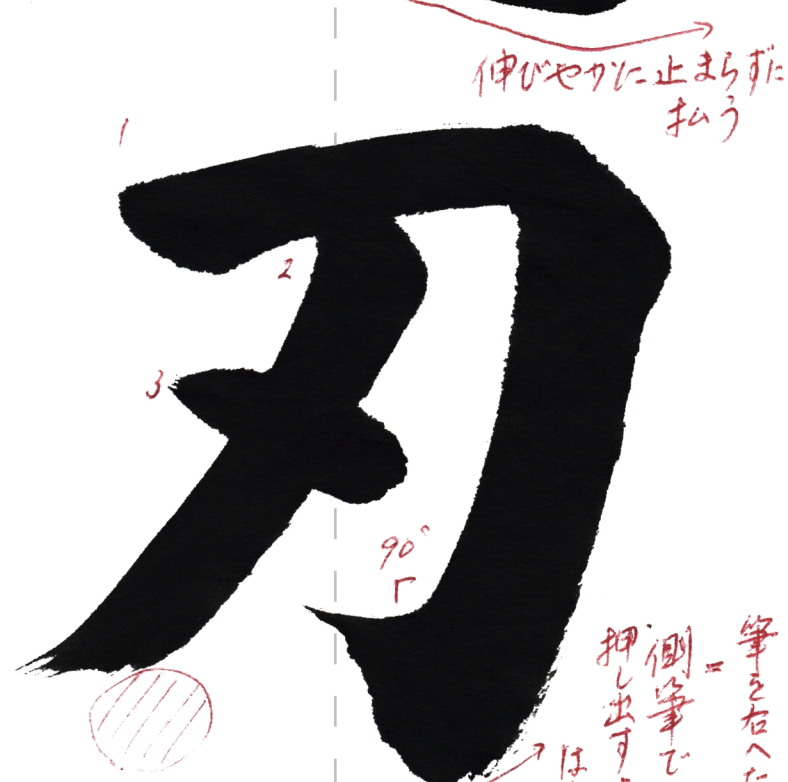 伸びやかに止まらずに
払う
1
刃
2
3
90°
筆を右へ
=
側筆で
押し出す
は